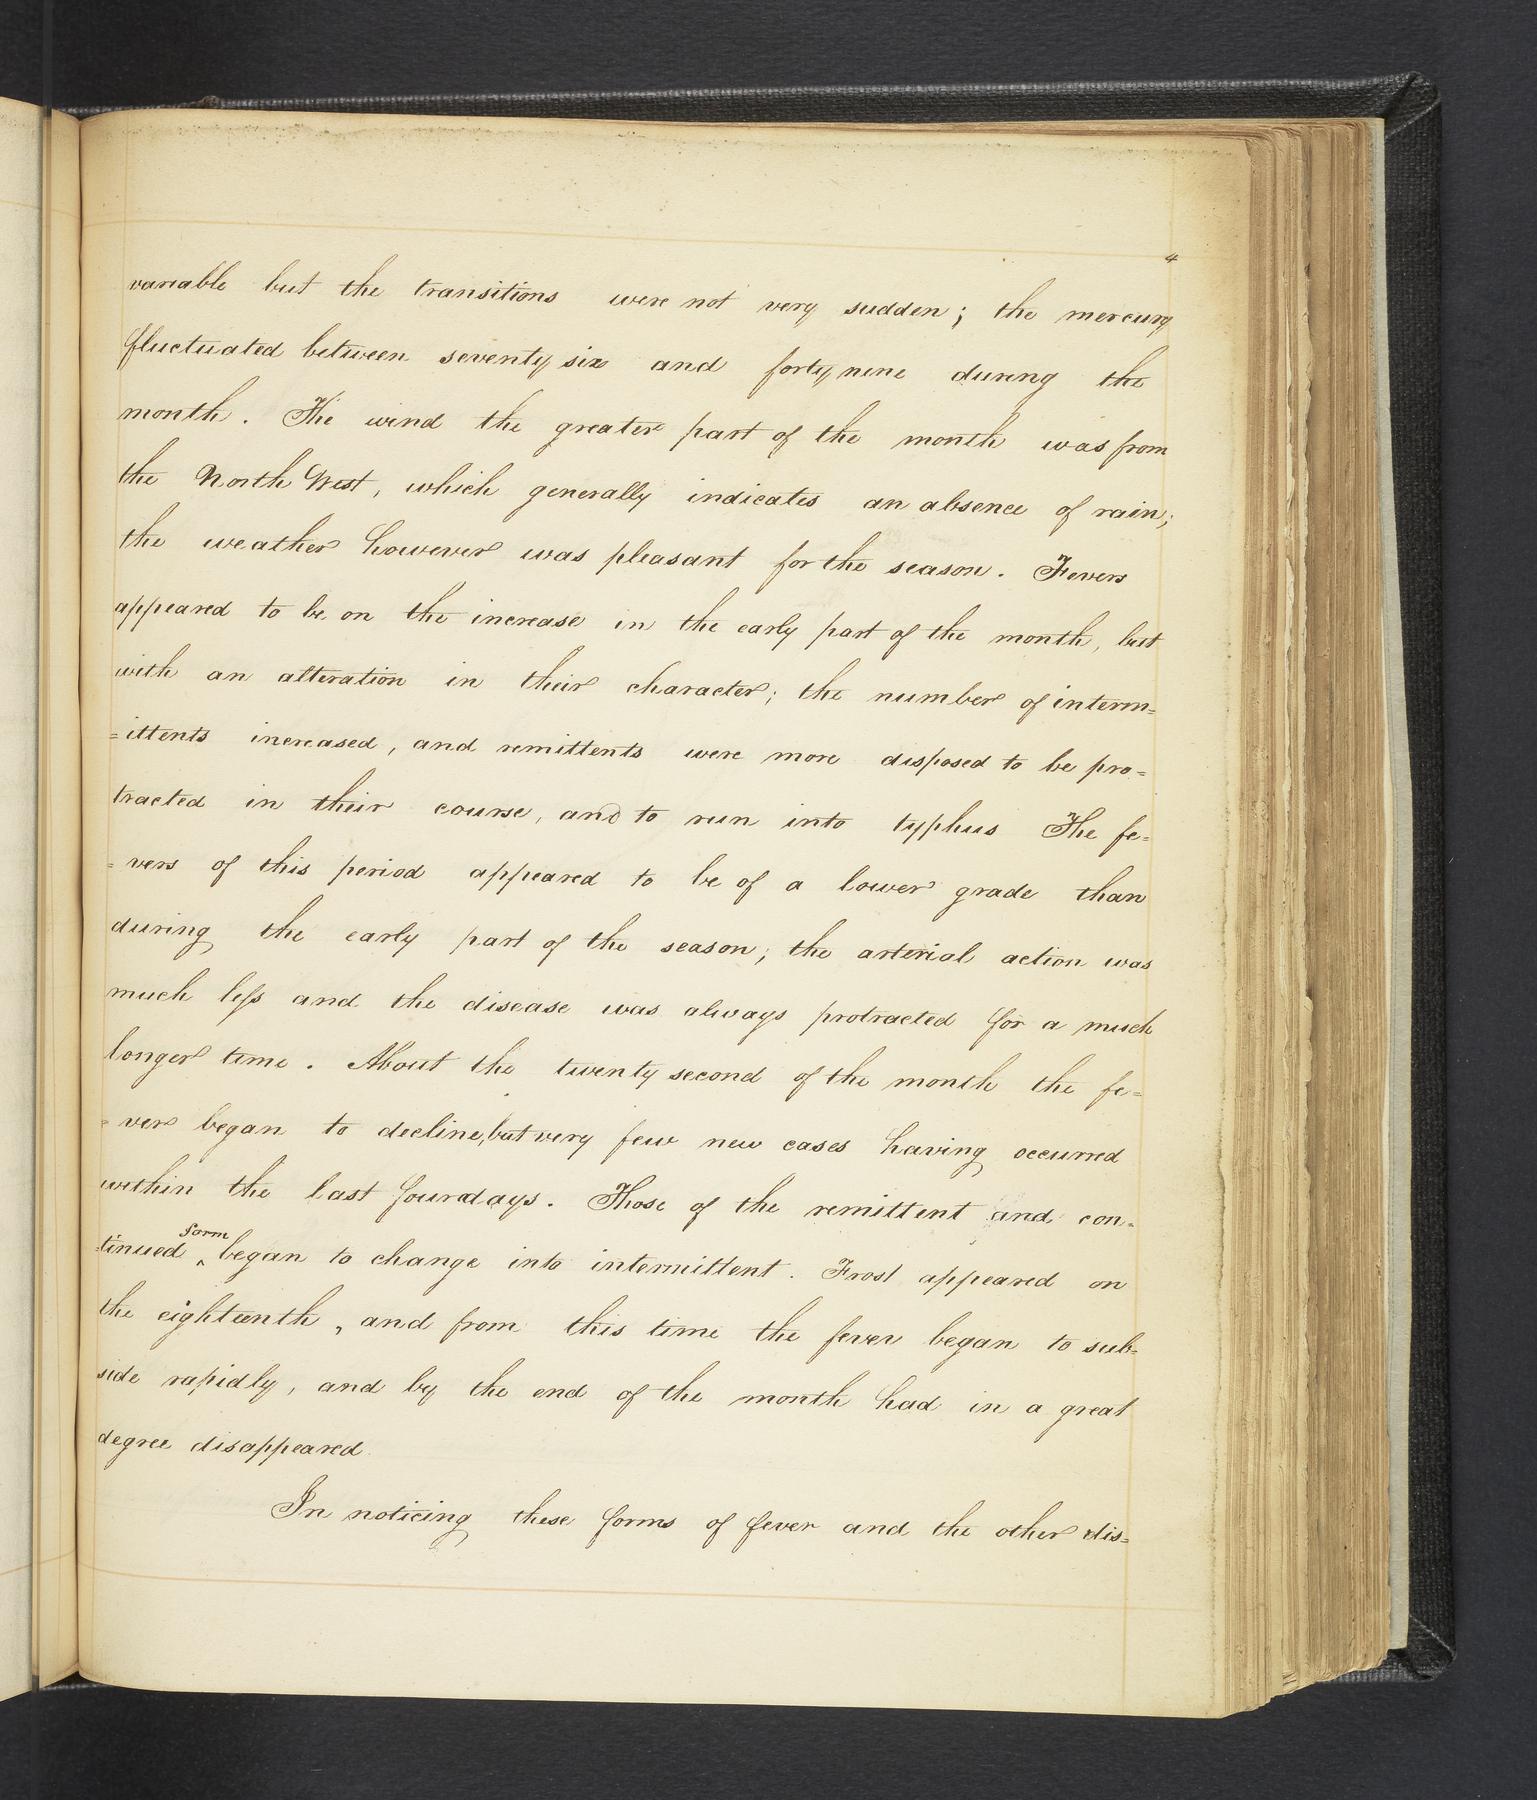 4
variable but the transitions were not very sudden; the mercury
fluctuated between seventy six and forty nine during the
month. The wind the greater part of the month was from
the North West, which generally indicates an absence of rain;
the weather however was pleasant for the season. Fevers
appeared to be on the increase in the early part of the month, but
with an alteration in their character; the number of interm=
=ittents increased, and remittents were more disposed to be pro=
tracted in their course, and to run into typhus The fe=
=vers of this period appeared to be of a lower grade than
during the early part of the season; the arterial action was
much less and the disease was always protracted for a much
longer time. About the twenty second of the month the fe=
=ver began to decline, but very few new cases having occurred
within the last four days. Those of the remittent and con=
=tinued ^form began to change into intermittent. Frost appeared on
the eighteenth, and from this time the fever began to sub=
side rapidly, and by the end of the month had in a great
degree disappeared
In noticing these forms of fever and the other dis=